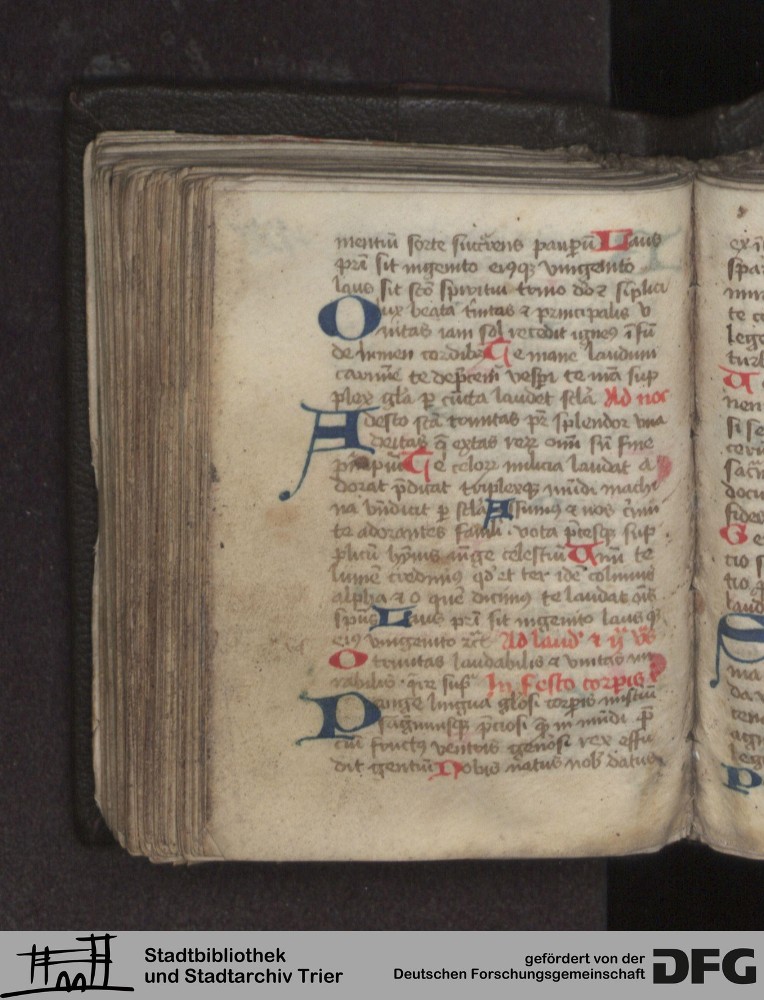 mentiũ forte succurens paupũ Laus
pr̃i sit ingenito eiꝰqꝫ unigenito
laus sit sc̃o spiritui trino deo ⁊ simplici
O lux beata t̃nitas ⁊ principalis v
nitas iam sol recedit igneꝰ ĩfũ
de lumen cordibꝰ Te mane laudum
carmĩe te dep̃cem̃ vespi te nr̃a sup
plex gl̃a ꝑ cũcta laudet secl̃a Ad noc
Adesto sc̃a trinitas pr̃ splendor una
deitas q̃ extas reꝝ om̃i sũ fine
pñcipiũ Te celoꝝ milicia laudat a
dorat p̃dicat triplexqꝫ mũdi machi
na bñdicit ꝑ secl̃a Assumꝰ ⁊ nos c̃nui
te adorantes famli vota p̃cesqꝫ sup
plicũ hỹnis iũge celestiũ Vnũ te
lumẽ credimꝰ qd̛ et ter idẽ colimus
alpha ⁊ o quẽ dicimꝰ te laudat oĩs
spũs Laus pr̃i sit ingenito laus qꝫ
eiꝰ unigenito Ad laud̛ ⁊ ij vs̃
O trinitas laudabilis ⁊ unitas mi
rabilis In festo corpis
Pange lingua gl̃osi corpis misteriũ
sãguinisqꝫ p̃ciosi quẽ in mũdi p̃
ciũ fructꝰ ventris gen̾osi rex effu
dit gentiũ Nobis natus nob̛ datus
Stadtbibliothek
und Stadtarchiv Trier
gefördert von der
Deutschen Forschungsgemeinschaft
DFG